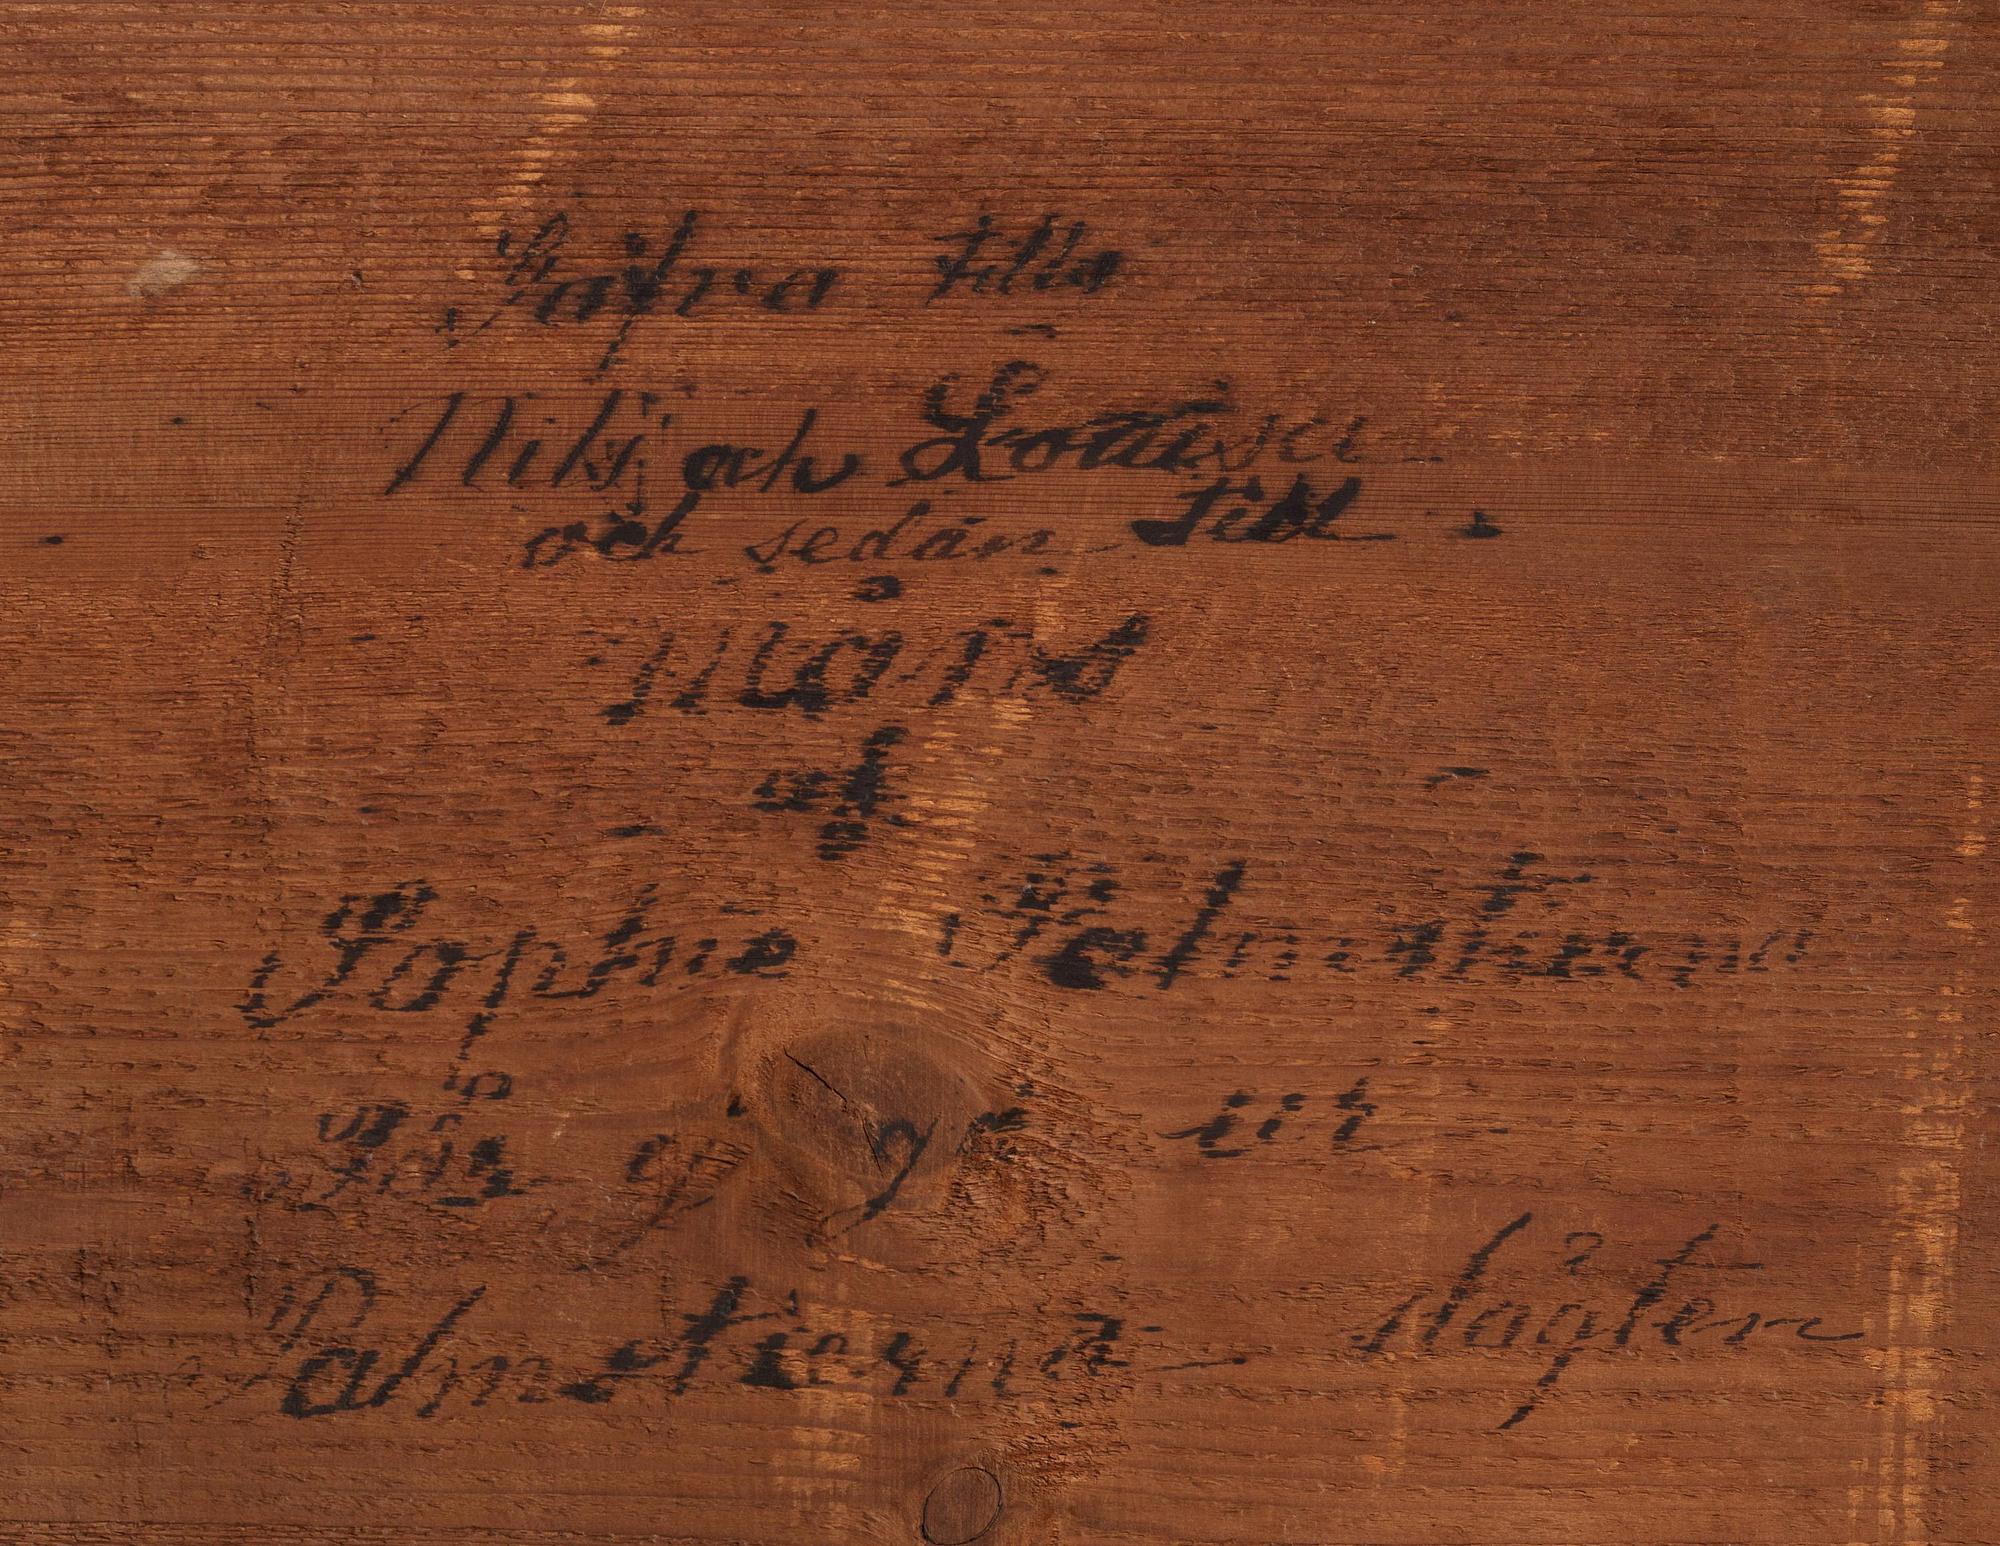 Gåfva till
Nils och Lovisa
och sedan till
Måns
af
Sophie Palmstierna
får ej gå ur
Palmstierna slägten